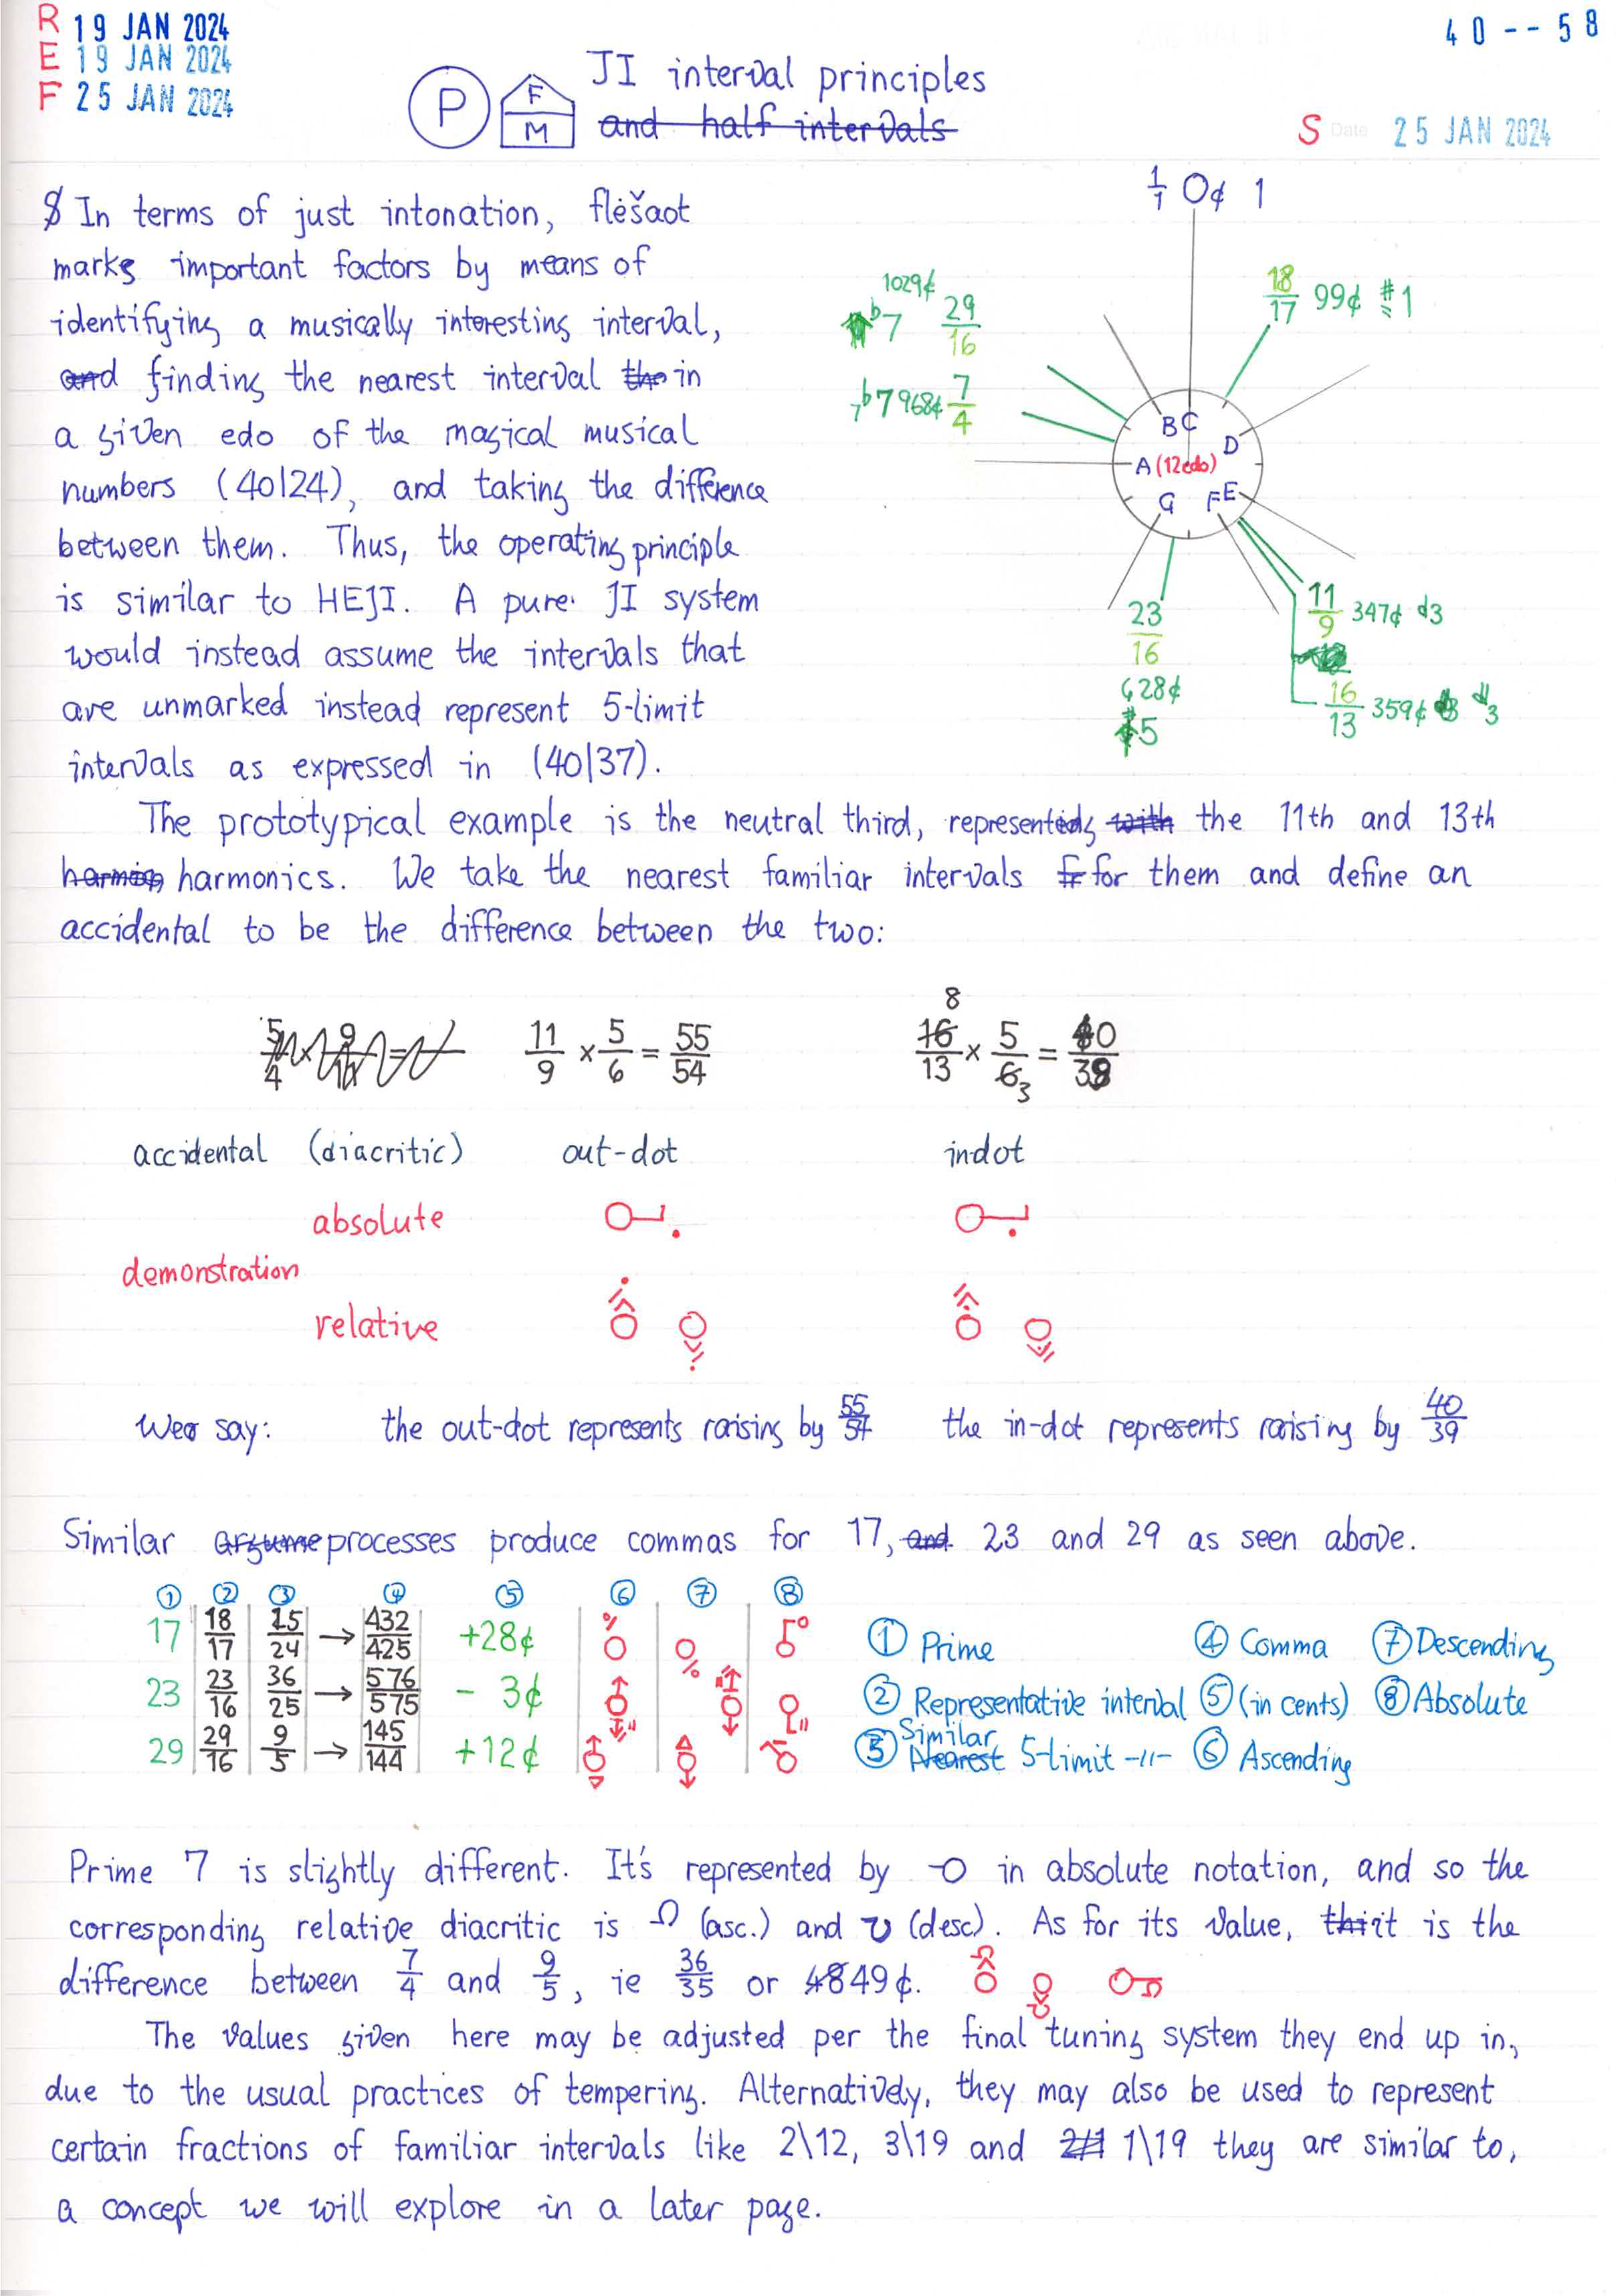 R 19 JAN 2024
E 19 JAN 2024
F 25 JAN 2024
40--58
P F M
JI interval principles
and half intervals
S Date 25 JAN 2024
$ In terms of just intonation, flėšaot
marks important factors by means of
identifying a musically interesting interval,
and finding the nearest interval in
a given edo of the magical musical
numbers (40|24), and taking the difference
between them. Thus, the operating principle
is similar to HEJI. A pure JI system
would instead assume the intervals that
are unmarked instead represent 5-limit
intervals as expressed in (40|37).
1/1 0¢ 1
18/17 99¢ #1
1029¢
b7 29/16
b7 968¢ 7/4
B C
D
A (12edo)
G F E
11/9 347¢ d3
16/13 359¢ d3
23/16
628¢
5
The prototypical example is the neutral third, representing with the 11th and 13th
harmonics. We take the nearest familiar intervals for them and define an
accidental to be the difference between the two:
11/9 × 5/6 = 55/54
8
16/13 × 5/6 3 = 40/39
accidental (diacritic) out-dot indot
absolute
demonstration
relative
We say: the out-dot represents raising by 55/54 the in-dot represents raising by 40/39
Similar processes produce commas for 17, and 23 and 29 as seen above.
① ② ③ ④ ⑤ ⑥ ⑦ ⑧
17 18/17 25/24 → 432/425 +28¢
23 23/16 36/25 → 576/575 - 3¢
29 29/16 9/5 → 145/144 +12¢
① Prime ④ Comma ⑦ Descending
② Representative interval ⑤ (in cents) ⑧ Absolute
③ Similar Nearest 5-limit -11- ⑥ Ascending
Prime 7 is slightly different. It's represented by -O in absolute notation, and so the
corresponding relative diacritic is (asc.) and (desc). As for its value, it is the
difference between 7/4 and 9/5, ie 36/35 or 49¢.
The values given here may be adjusted per the final tuning system they end up in,
due to the usual practices of tempering. Alternatively, they may also be used to represent
certain fractions of familiar intervals like 2\12, 3\19 and 1\19 they are similar to,
a concept we will explore in a later page.